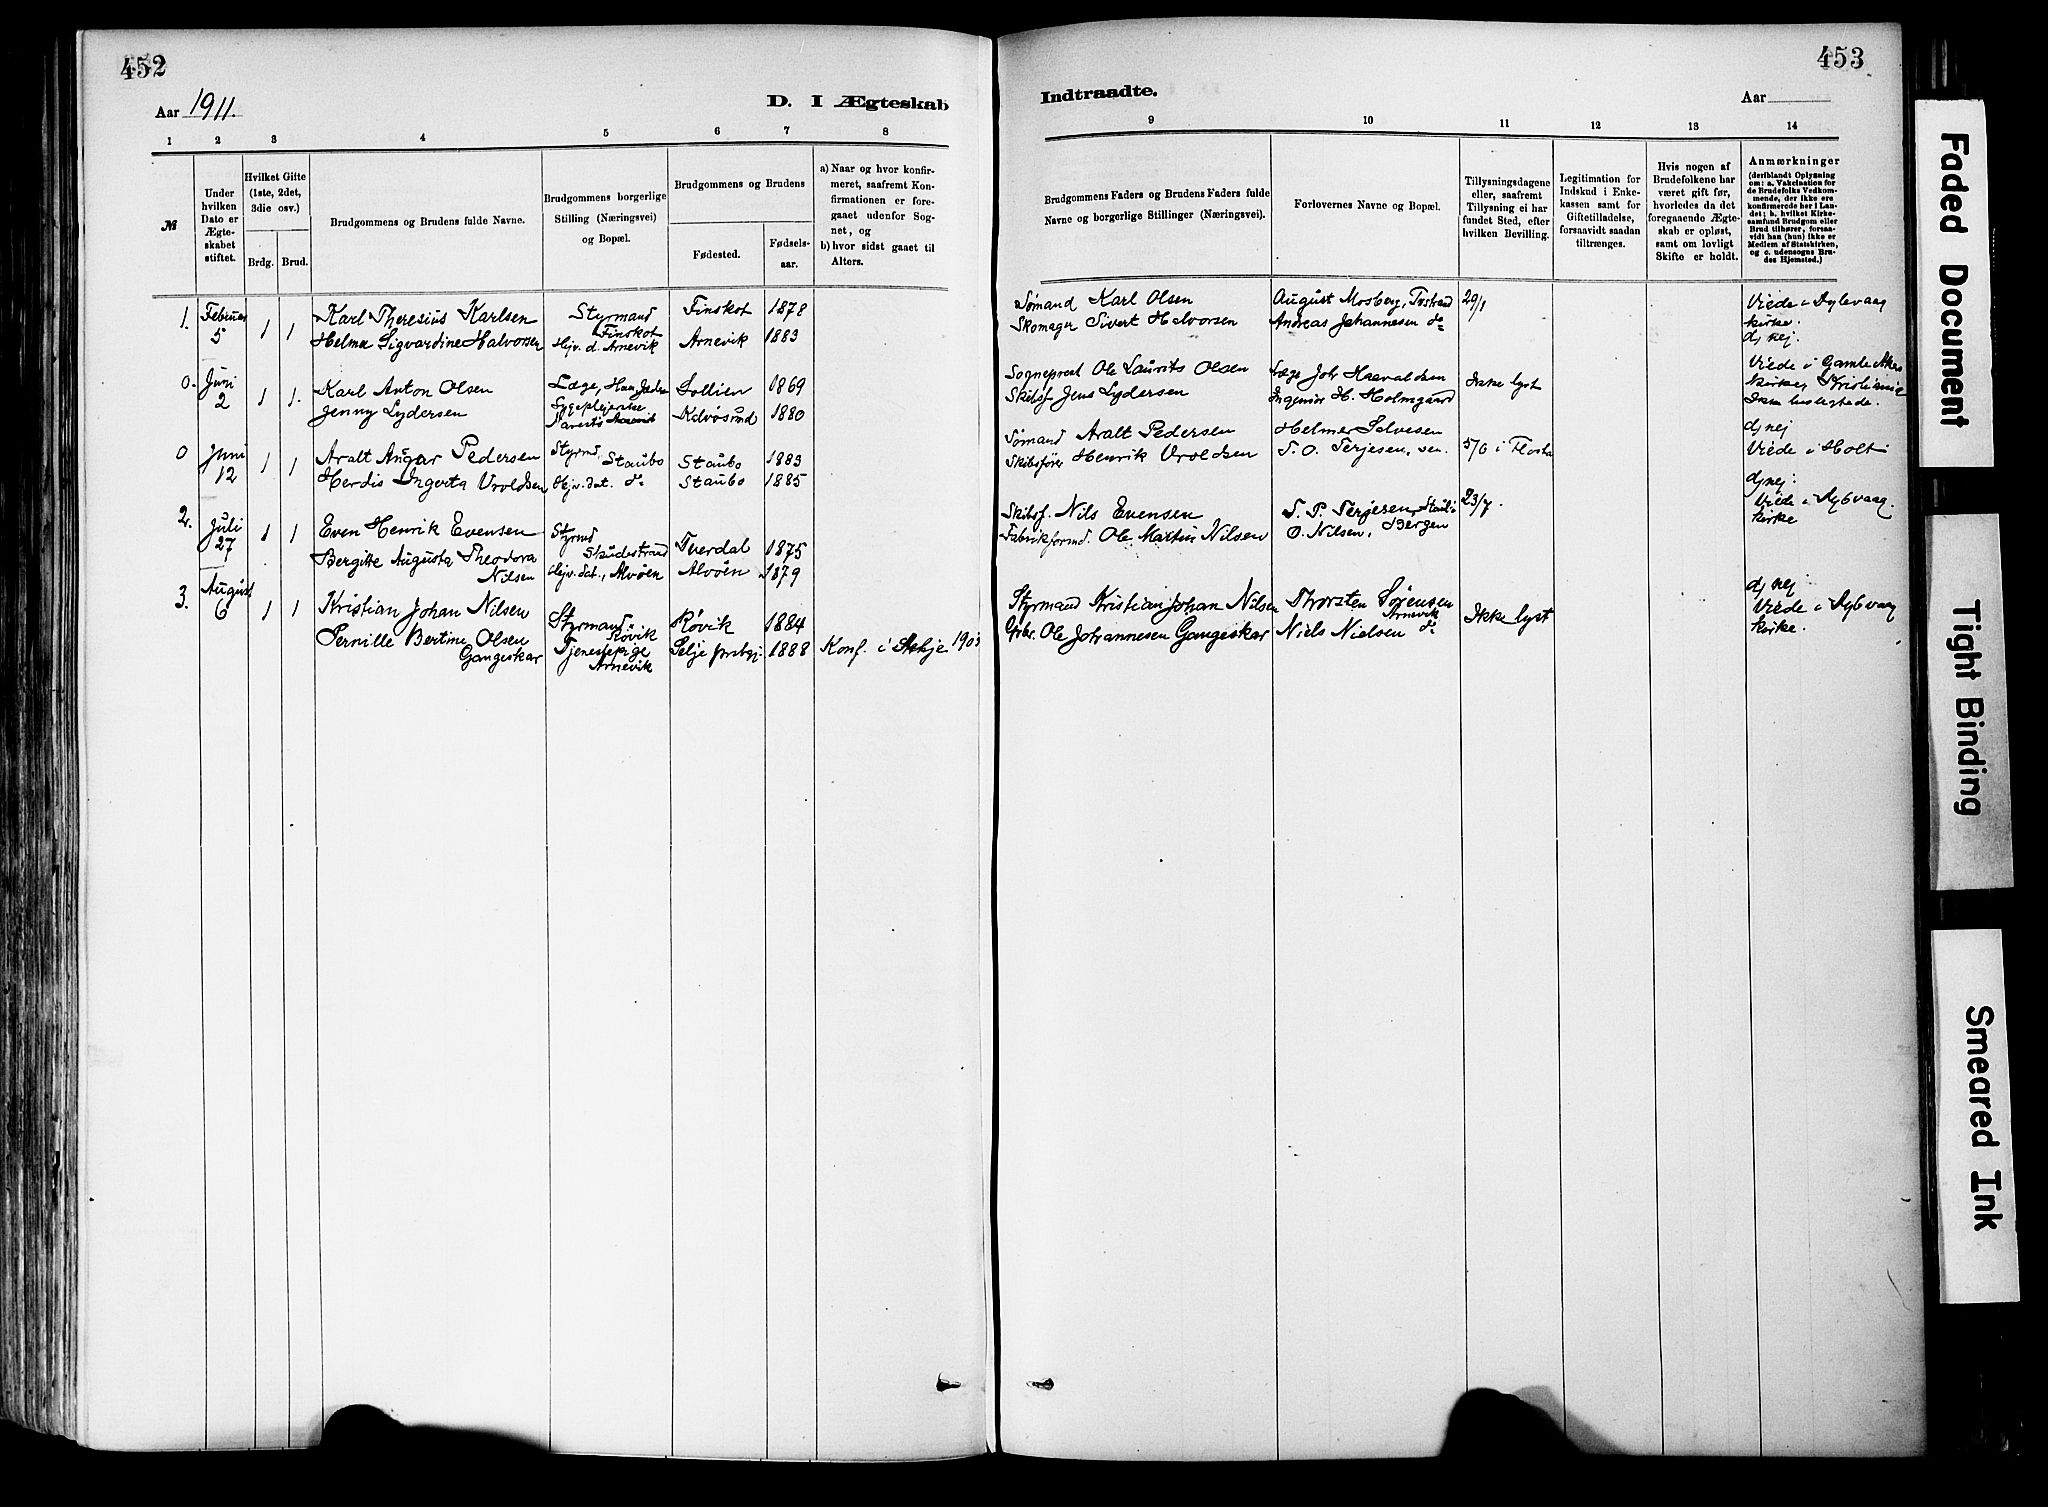 452
Aar 1911.
D. I Ægteskab
1 2 3 4 5 6 7 8
№
Under hvilken Dato er Ægteskabet stiftet.
Hvilket Gifte (1ste, 2det, 3die osv.)
Brdg. Brud.
Brudgommens og Brudens fulde Navne.
Brudgommens borgerlige Stilling (Næringsvei) og Bopæl.
Brudgommens og Brudens
Fødested.
Fødsels-aar.
a) Naar og hvor konfirmeret, saafremt Konfirmationen er foregaaet udenfor Sognet, og
b) hvor sidst gaaet til Alters.
1. Februar 5 1 1 Karl Theresius Karlsen Styrmand Finskot Finskot 1878
Helma Sigvardine Halvorsen Hejv. d. Arnevik Arnevik 1883
0. Juni 2 1 1. Karl Anton Olsen Læge, Sollien 1869
Jenny Lydersen Sygeplejerske 1880
0 Juni 12 1 1 Aralt Aagar Pedersen Styrmd, Staubo Staubo 1883
Herdis Ingerta Vroldsen Hejv. dat. do Staubo 1885
2. Juli 27 1 1 Even Henrik Evensen Styrmd Skudestrand Tverdal 1875
Bergitte Augusta Theodora Nilsen Hejv. dat., Alvøen Alvøen 1879
3. August 6 1 1 Kristian Johan Nilsen Styrmand Røvik Røvik 1884
Pernille Bertine Olsen Gangeskar Tjenestepige Arnevik Selje prstgj. 1888 Konf. i Selje 1903
453
Indtraadte.
Aar
9 10 11 12 13 14
Brudgommens Faders og Brudens Faders fulde Navne og borgerlige Stillinger (Næringsvei).
Forlovernes Navne og Bopæl.
Tillysningsdagene eller, saafremt Tillysning ei har fundet Sted, efter hvilken Bevilling.
Legitimation for Indskud i Enkekassen samt for Giftetilladelse, forsaavidt saadan tiltrænges.
Hvis nogen af Brudefolkene har været gift før, hvorledes da det foregaaende Ægteskab er opløst, samt om lovligt Skifte er holdt.
Anmærkninger
(deriblandt Oplysning om: a. Vakcination for de Brudefolks Vedkommende, der ikke ere konfirmerede her i Landet; b. hvilket Kirkesamfund Brudgom eller Brud tilhører, forsaavidt han (hun) ikke er Medlem af Statskirken, og c. udensogns Brudes Hjemsted.)
Sømand Karl Olsen August Mosberg, Tvstrand 29/1 Viede i Dybvaag kirke.
Skomager Sivert Halvorsen Andreas Johannesen do d, nej.
Sogneprest Ole Laurits Olsen Læge Joh Haavaldsen Ikke lyst Viede i Gamle Akers kirke, Kristiania
Skibsf. Jens Lydersen Ingeniør H. Holmgaard Ikke beslegtede.
Sømand Aralt Pedersen Helmer Salvesen 5/6 i Flosta d, nej Viede i Holt
Skibsfører Henrik Vroldsen T. O. Terjesen, sen. d, nej.
Skibsf. Nils Evensen T. P. Terjesen, Staubo 23/7. Viede i Dybvaag. kirke
Fabrikformd. Ole Martin Nilsen O. Nilsen, Bergen d, nej
Styrmand Kristian Johan Nilsen Thorsten Sørensen Arnevik Ikke lyst Viede i Dybvaag kirke.
Gbr. Ole Johannesen Gangeskar Niels Nielsen do
Faded Document
Tight Binding
Smeared Ink